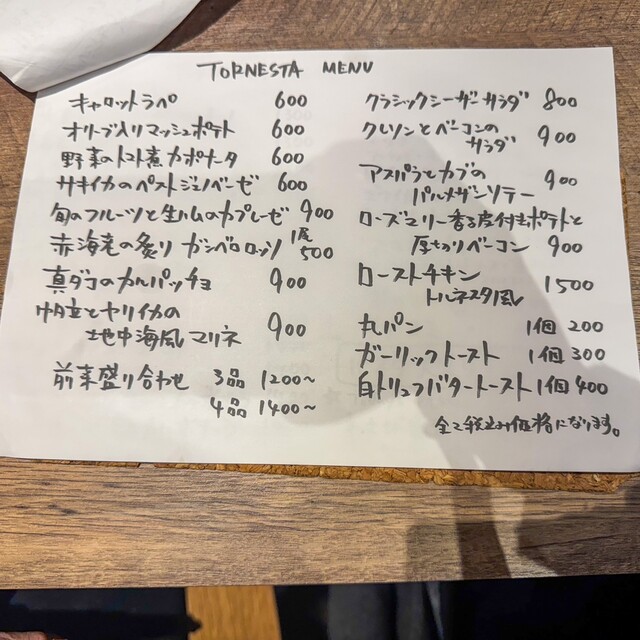 TORNESTA MENU
キャロットラペ 600
オリーブ入りマッシュポテト 600
野菜のトマト煮カポナータ 600
サキイカのペストジェノベーゼ 600
旬のフルーツと生ハムのカプレーゼ 900
赤海老の炙り ガンベロロッソ 1尾 500
真ダコのカルパッチョ 900
帆立とヤリイカの
地中海風マリネ 900
前菜盛り合わせ 3品 1200〜
4品 1400〜
クラシックシーザーサラダ 800
クレソンとベーコンの
サラダ 900
アスパラとカブの
パルメザンソテー 900
ローズマリー香る皮付きポテトと
厚切りベーコン 900
ローストチキン
トルネスタ風 1500
丸パン 1個 200
ガーリックトースト 1個 300
白トリュフバタートースト 1個 400
全て税込み価格になります。